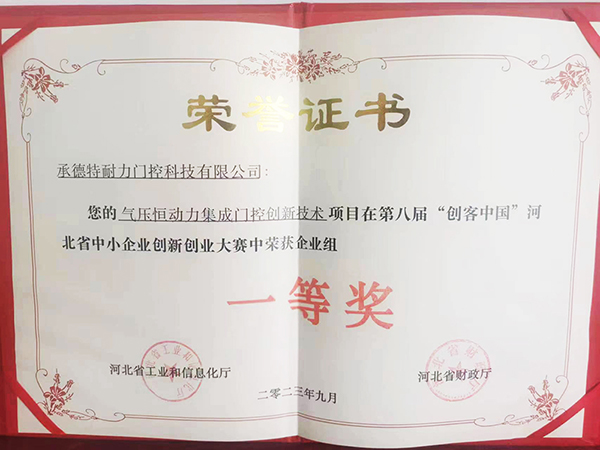 荣誉证书
承德特耐力门控科技有限公司：
您的 气压恒动力集成门控创新技术 项目在第八届“创客中国”河
北省中小企业创新创业大赛中荣获企业组
一等奖
河北省工业和信息化厅
河北省财政厅
二零二三年九月